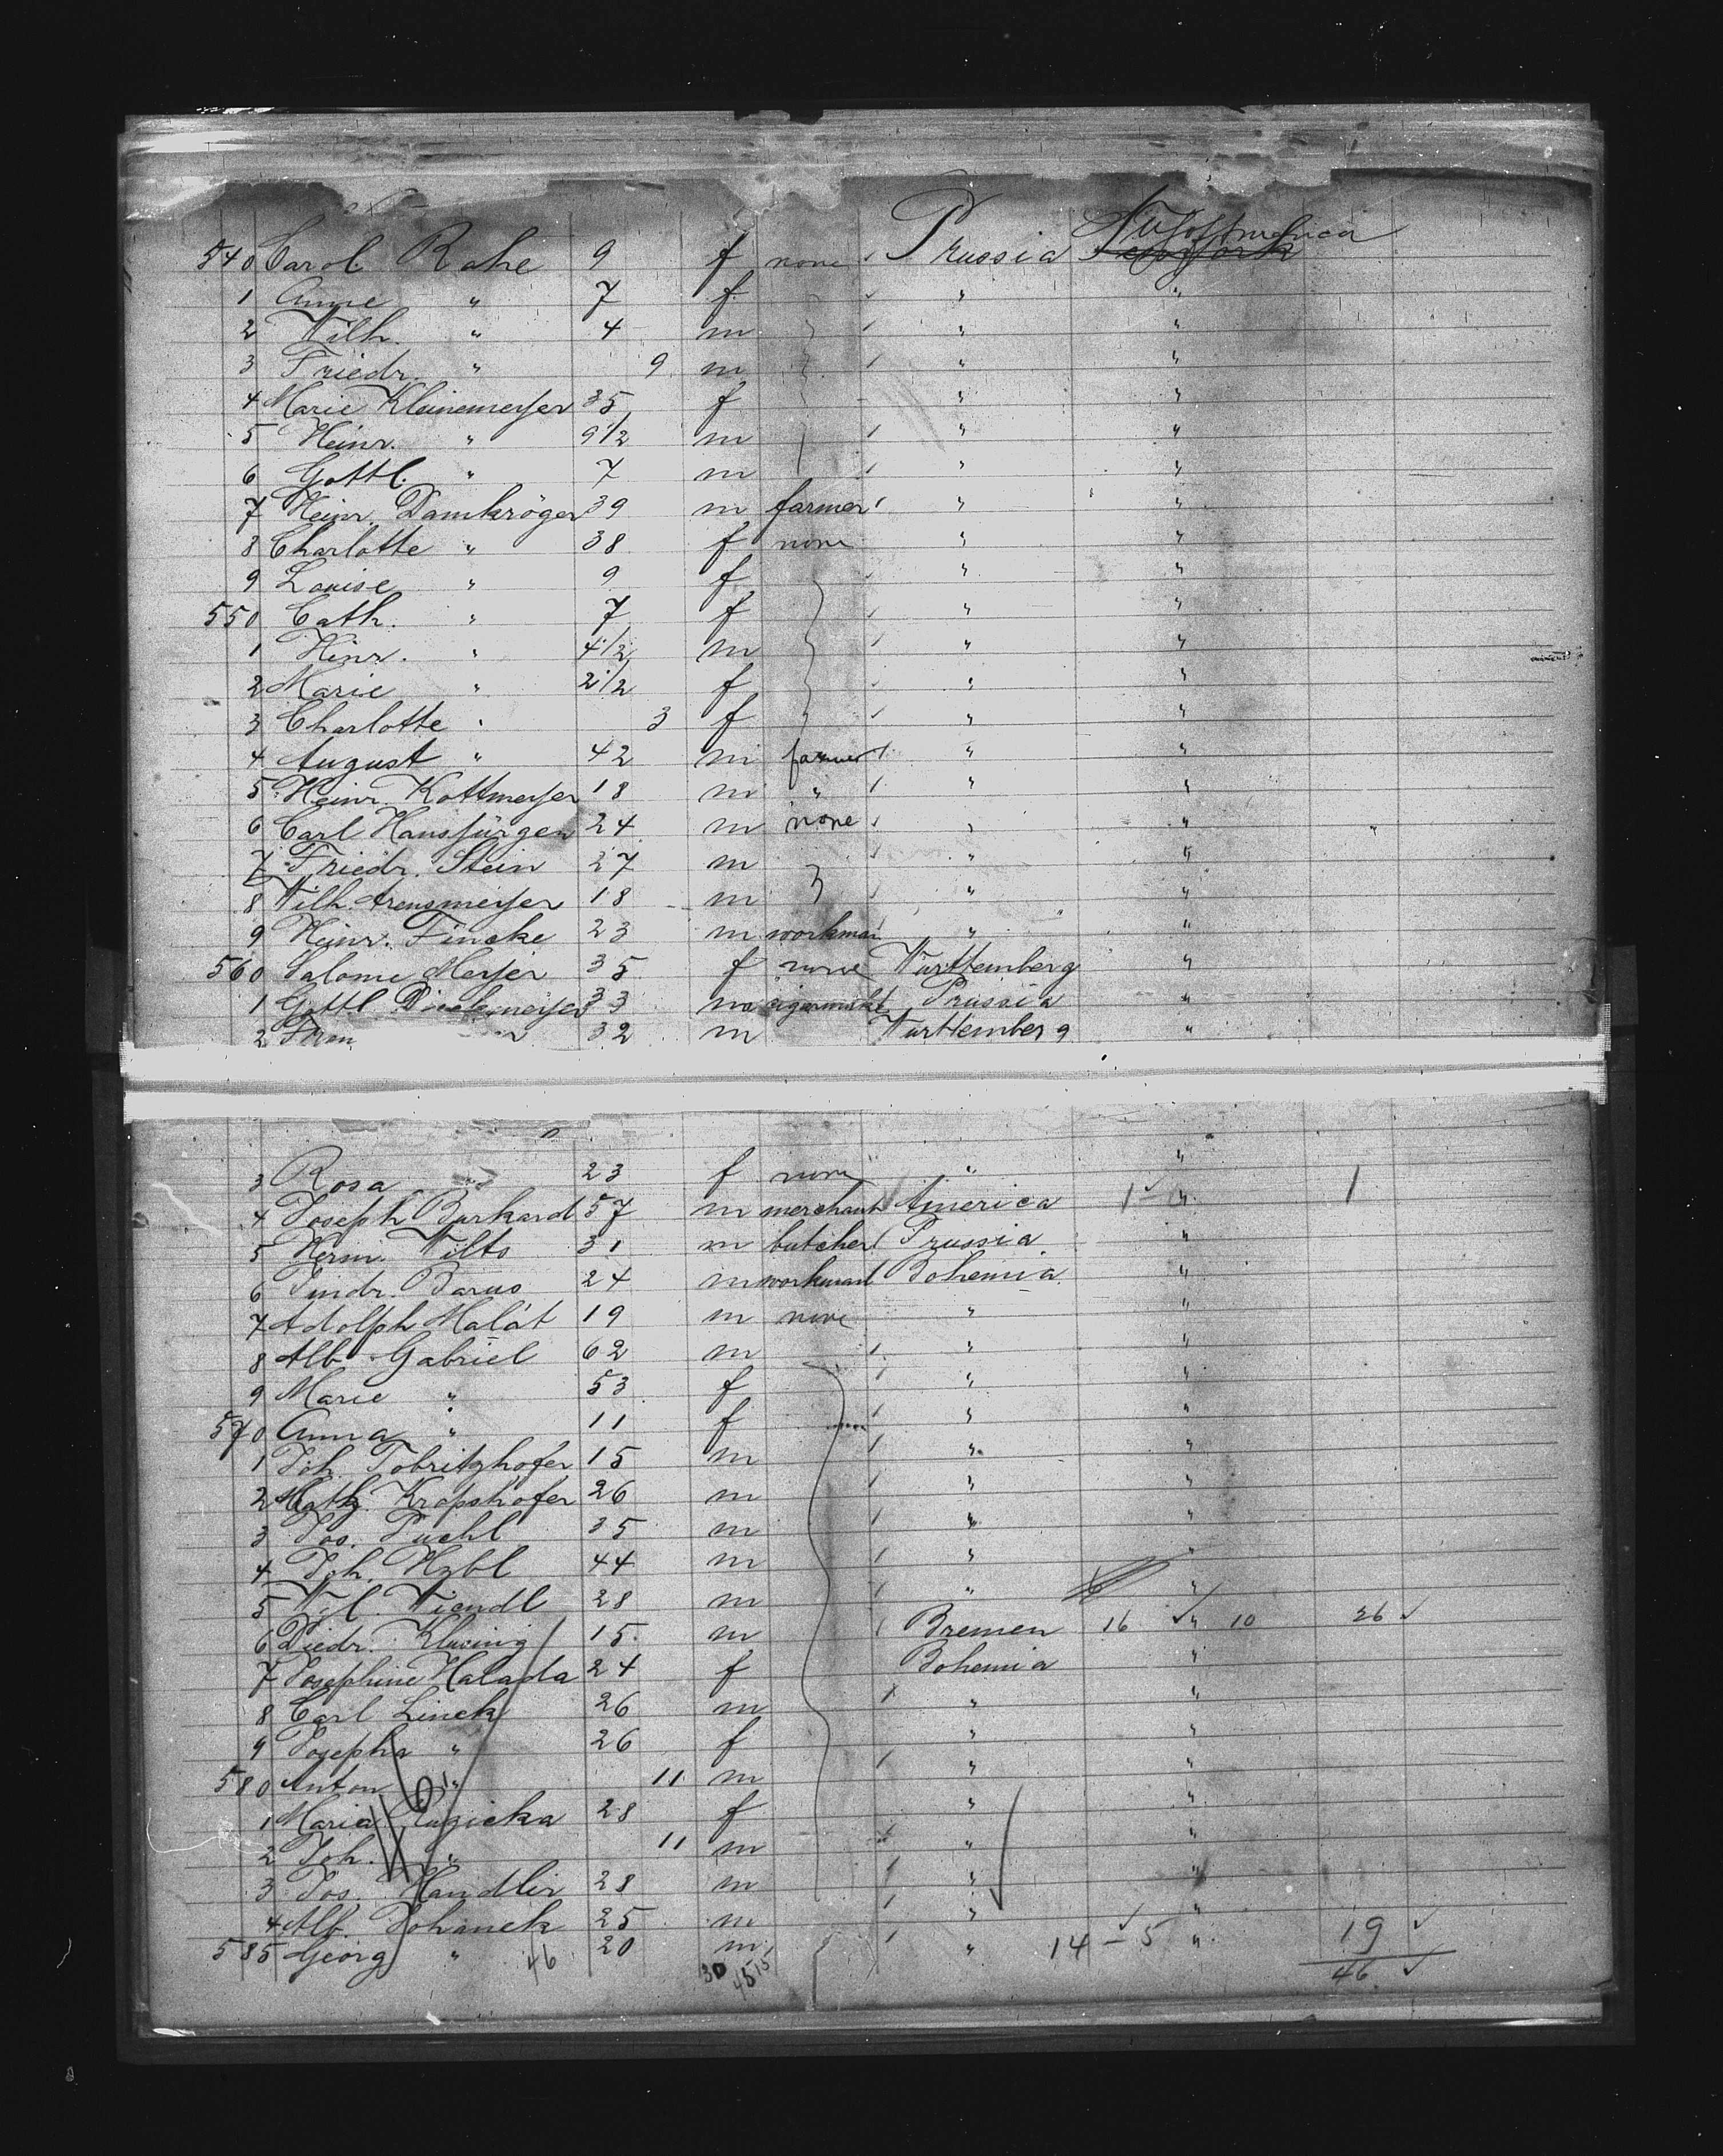 540 Carol Rahe 9 f none Prussia U S of America New York
1 Anne " 7 f " "
2 Wilh. " 4 m " "
3 Friedr. " 9 m " "
4 Marie Kleinemeyer 35 f " "
5 Heinr. " 9 1/2 m " "
6 Gottl. " 7 m " "
7 Heinr. Damkröger 39 m farmer " "
8 Charlotte " 38 f none " "
9 Louise " 9 f " "
550 Cath. " 7 f " "
1 Hinr. " 4 1/2 m " "
2 Marie " 2 1/2 f " "
3 Charlotte " 3 f " "
4 August " 42 m farmer " "
5 Heinr. Kottmeyer 18 m " " "
6 Carl Hansjürgen 24 m none " "
7 Friedr. Stein 27 m " "
8 Wilh. Arensmeyer 18 m " "
9 Heinr. Fincke 23 m workman " "
560 Salome Meyer 35 f none Württemberg "
1 Gottl. 33 m Prussia "
2 32 m Württemberg "
3 Rosa 23 f none " "
4 Joseph Burkard 57 m merchant America 1 - " 1
5 Herm. Wilts 31 m butcher Prussia "
6 24 m workman Bohemia "
7 Adolph Malát 19 m none " "
8 Alb. Gabriel 62 m " "
9 Marie " 53 f " "
570 Anna " 11 f " "
1 Joh. Tobritzhofer 15 m " "
2 Math. Kropshofer 26 m " "
3 Jos. Puchl 35 m " "
4 Joh. Hzbl 44 m " "
5 28 m " "
6 Diedr. Klusing 15 m Bremen 16 " 10 26
7 Josephine Halada 24 f Bohemia "
8 Carl Linek 26 m " "
9 Josepha " 26 f " "
580 Anton " 11 m " "
1 Maria 28 f " "
2 Joh. " 11 m " "
3 Jos. Handlir 28 m " "
4 Alb. Johanek 25 m " "
585 Georg " 46 20 m " 14 - 5 " 19
30 45 15 46